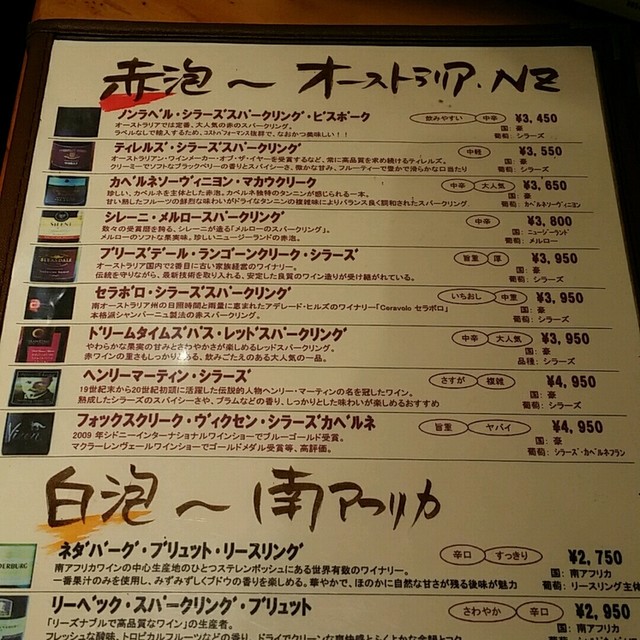 赤泡～オーストラリア.NZ
ノンラベル・シラーズスパークリング・ビスポーク 飲みやすい 中辛 ¥3,450
オーストラリアでは定番、大人気の赤のスパークリング。 国：豪
ラベルなしで輸入するため、コストパフォーマンス抜群で、なおかつ美味しい！！ 葡萄：シラーズ
ティレルズ・シラーズスパークリング 中軽 ¥3,550
オーストラリアン・ワインメーカー・オブ・ザ・イヤーを受賞するなど、常に高品質を求め続けるティレルズ。 国：豪
クリーミーでソフトなブラックベリーの香りとスパイシーさ、微かな甘み。フルーティーで豊かで滑らかな口当たり 葡萄：シラーズ
カベルネソーヴィニヨン・マカウクリーク 中辛 大人気 ¥3,650
珍しい、カベルネを主体とした赤泡。カベルネ独特のタンニンが感じられる一本。 国：豪
甘い熟したフルーツの鮮烈な味わいがドライなタンニンの複雑味によりバランス良く調和されたスパークリング 葡萄：カベルネソーヴィニヨン
シレーニ・メルロースパークリング 中辛 ¥3,800
数々の受賞歴を誇る、シレーニが造る「メルローのスパークリング」。 国：ニュージーランド
メルローのソフトな果実味。珍しいニュージーランドの赤泡。 葡萄：メルロー
ブリーズデール・ランゴーンクリーク・シラーズ 旨重 厚 ¥3,950
オーストラリア国内で2番目に古い家族経営のワイナリー。 国：豪
伝統を守りながら、最新技術を取り入れる。安定した良質のワイン造りが受け継がれている。 葡萄：シラーズ
セラボロ・シラーズスパークリング いちおし 中重 ¥3,950
南オーストラリア州の日照時間と雨量に恵まれたアデレード・ヒルズのワイナリー「Ceravolo セラボロ」 国：豪
本格派シャンパーニュ製法の赤スパークリング。 葡萄：シラーズ
ドリームタイムズパス・レッドスパークリング 中辛 大人気 ¥3,950
やわらかな果実の甘みとさわやかさが楽しめるレッドスパークリング。 国：豪
赤ワインの里さもしっかりある、飲みごたえのある大人気の一品。 品種：シラーズ
ヘンリーマーティン・シラーズ さすが 複雑 ¥4,950
19世紀末から20世紀初頭に活躍した伝説的人物ヘンリー・マーティンの名を冠したワイン。 国：豪
熟成したシラーズのスパイシーさや、プラムなどの香り、しっかりとした味わいが楽しめるおすすめ 葡萄：シラーズ
フォックスクリーク・ヴィクセン・シラーズカベルネ 旨重 ヤバイ ¥4,950
2009 年シドニーインターナショナルワインショーでブルーゴールド受賞。 国：豪
マクラーレンヴェールワインショーでゴールドメダル受賞等、高評価。 葡萄：シラーズ・カベルネフラン
白泡～南アフリカ
ネダバーグ・ブリュット・リースリング 辛口 すっきり ¥2,750
南アフリカワインの中心生産地のひとつステレンボッシュにある世界有数のワイナリー。 国：南アフリカ
一番果汁のみを使用し、みずみずしくブドウの香りを楽しめる。華やかで、ほのかに自然な甘さが残る後味が魅力 葡萄：リースリング主体
リーベック・スパークリング・ブリュット さわやか 辛口 ¥2,950
「リーズナブルで高品質なワイン」の生産者。 国：南アフリカ
フレッシュな酸味、トロピカルフルーツなどの香り、ドライでクリーンな爽快感と